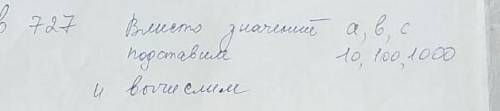 в 727 Вместо значений a, в, с
подставим 10, 100, 1000
и вычислим